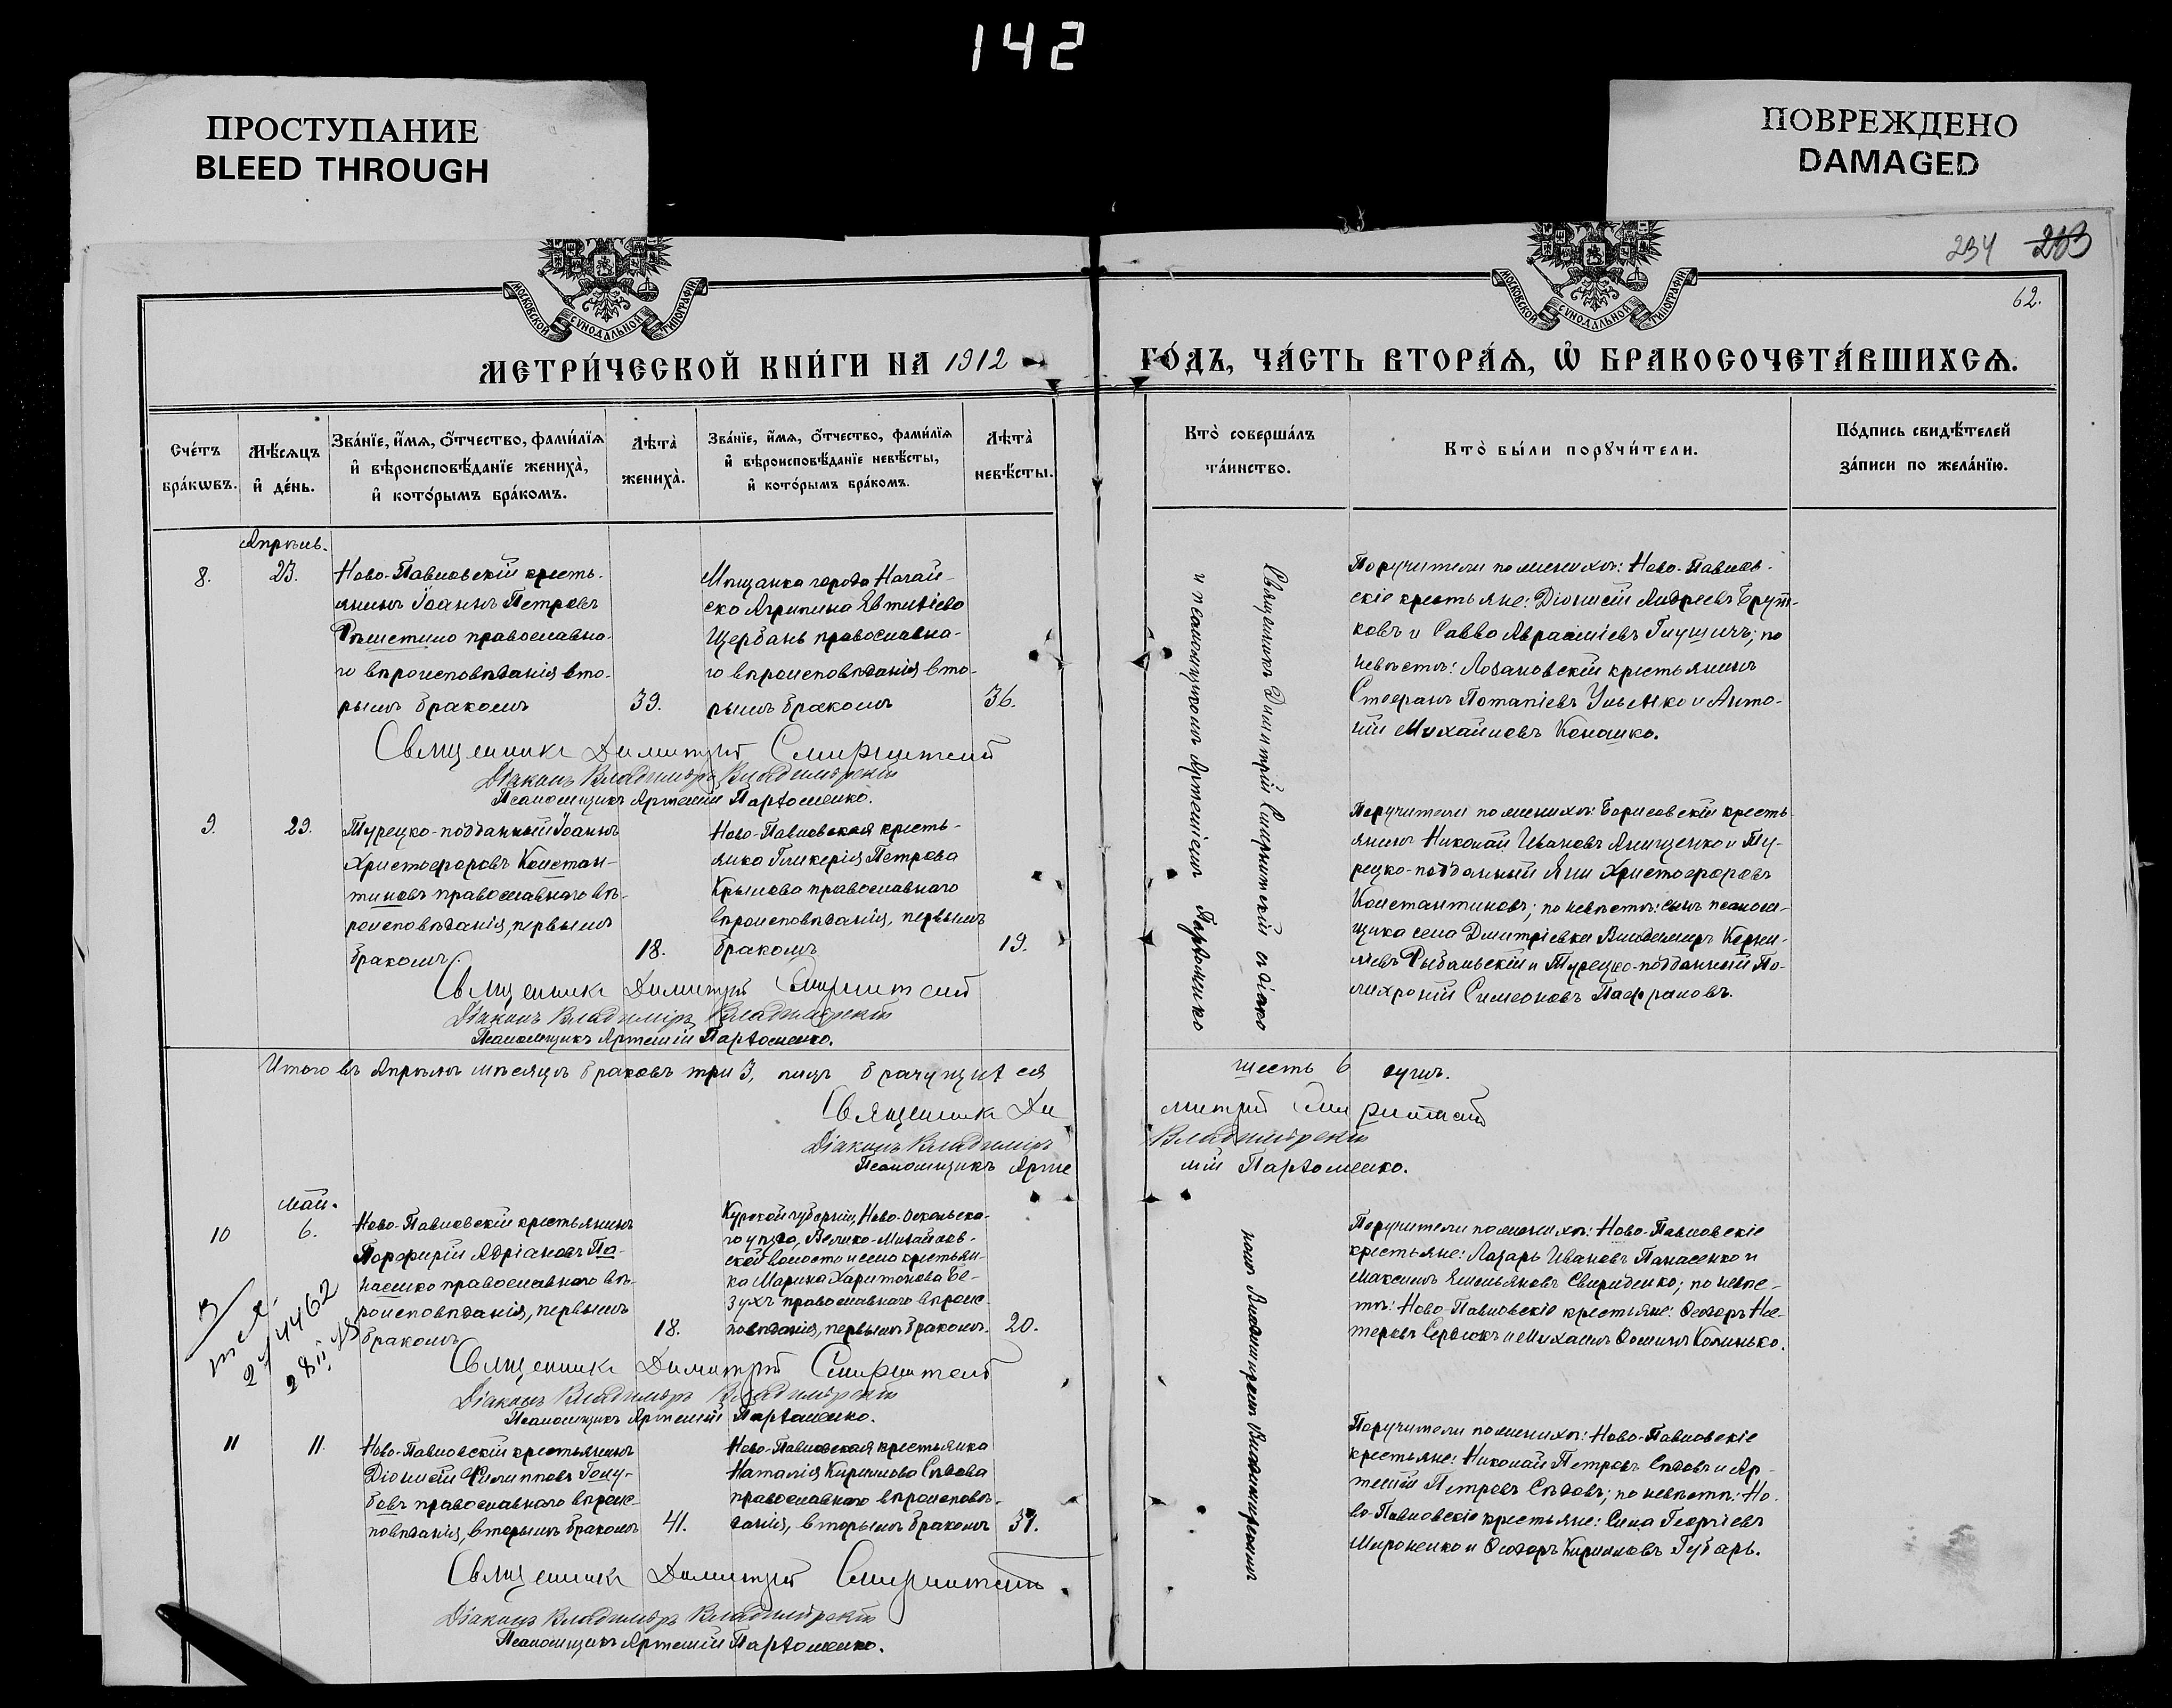 142
ПРОСТУПАНИЕ
BLEED THROUGH
ПОВРЕЖДЕНО
DAMAGED
234 213
62.
МОСКОВСКОЙ СѴНОДАЛЬНОЙ ТИПОГРАФІИ
МОСКОВСКОЙ СѴНОДАЛЬНОЙ ТИПОГРАФІИ
МЕТРИ́ЧЕСКОЙ КНИ́ГИ НА 1912
ГО́ДЪ, ЧА́СТЬ ВТОРА́Ѧ, Ѡ҆ БРАКОСОЧЕТА́ВШИХСѦ.
Сче́тъ
бра́кѡвъ.
Мѣ́сѧцъ
и҆ де́нь.
Зва́нїе, и҆́мѧ, ѻ҆́тчество, фами́лїѧ
и҆ вѣроисповѣ́данїе жениха̀,
и҆ кото́рымъ бра́комъ.
Лѣта̀
жениха̀.
Зва́нїе, и҆́мѧ, ѻ҆́тчество, фами́лїѧ
и҆ вѣроисповѣ́данїе невѣ́сты,
и҆ кото́рымъ бра́комъ.
Лѣта̀
невѣ́сты.
Кто̀ соверша́лъ
та́инство.
Кто̀ бы́ли порꙋчи́тели.
По́дпись свидѣ́телей
за́писи по жела́нїю.
Апрѣль.
8.
23.
Ново-Павловскій кресть-
янинъ Іоаннъ Петровъ
Рѣшетило православна-
го вѣроисповѣданія вто-
рымъ бракомъ
39.
Мѣщанка города Ногай-
ска Агрипина Евтихіева
Щербань православна-
го вѣроисповѣданія вто-
рымъ бракомъ
36.
Священникъ Димитрій Смирнитскій и діако
и псаломщикомъ Артеміемъ Пархоменко
Поручители по женихѣ: Ново-Павлов-
скіе крестьяне: Діонисій Андреевъ Брут-
ковъ и Савва Авраамiевъ Глущичъ; по
невѣстѣ: Лозановскій крестьянинъ
Стефанъ Потапіевъ Ульенко и Анто-
ній Михайловъ Конашко.
Священникъ Димитрій Смирнитскій
Діаконъ Владиміръ Владимірскій
Псаломщикъ Артемій Пархоменко.
9.
29.
Турецко-подданный Іоаннъ
Христофоровъ Констан-
тиновъ православнаго вѣ-
роисповѣданія, первымъ
бракомъ
18.
Ново-Павловская кресть-
янка Гликерія Петрова
Крылова православнаго
вѣроисповѣданія, первымъ
бракомъ
19.
Поручители по женихѣ: Борисовскій кресть-
янинъ Николай Ивановъ Анищенко и Ту-
рецко-подданный Яни Христофоровъ
Константиновъ; по невѣстѣ: сынъ псалом-
щика села Дмитріевки Владимиръ Корни-
ліевъ Рыбальскій и Турецко-подданный По-
лихроній Симеоновъ Пафрановъ.
Священникъ Димитрій Смирнитскій
Діаконъ Владиміръ Владимірскій
Псаломщикъ Артемій Пархоменко.
Итого въ Апрѣлѣ мѣсяцѣ браковъ три 3, лицъ брачущихся
шесть 6 душъ.
Священникъ Ди
митрій Смирнитскій
Діаконъ Владиміръ
Владимірскій
Псаломщикъ Арте
мій Пархоменко.
Май.
10
6.
Ново-Павловскій крестьянинъ
Порфирій Адріановъ Па-
насенко православнаго вѣ-
роисповѣданія, первымъ
бракомъ
18.
Курской губерніи, Ново-Оскольска-
го уѣзда, Велико-Михайлов-
ской волости и села крестьян-
ка Марина Харитонова Бе-
зухъ православнаго вѣроис-
повѣданія, первымъ бракомъ.
20.
номъ Владиміромъ Владимірскимъ
Поручители по женихѣ: Ново-Павловскіе
крестьяне: Лазарь Ивановъ Панасенко и
Максимъ Емельяновъ Свириденко; по невѣс-
тѣ: Ново-Павловскіе крестьяне: Ѳеодоръ Нес-
теровъ Сердюкъ и Михаилъ Ѳоминъ Колинько.
Священникъ Димитрій Смирнитскій
Діаконъ Владиміръ Владимірскій
Псаломщикъ Артемій Пархоменко.
11
11.
Ново-Павловскій крестьянинъ
Діонисій Филипповъ Голу-
бовъ православнаго вѣроис-
повѣданія, вторымъ бракомъ
41.
Ново-Павловская крестьянка
Наталія Кириллова Сѣдова
православнаго вѣроисповѣ-
данія, вторымъ бракомъ
37.
Поручители по женихѣ: Ново-Павловскіе
крестьяне: Николай Петровъ Сѣдовъ и Ар-
темій Петровъ Сѣдовъ; по невѣстѣ: Но-
во-Павловскіе крестьяне: Сила Георгіевъ
Мироненко и Ѳеодоръ Кирилловъ Губарь.
Священникъ Димитрій Смирнитскій
Діаконъ Владиміръ Владимірскій
Псаломщикъ Артемій Пархоменко.